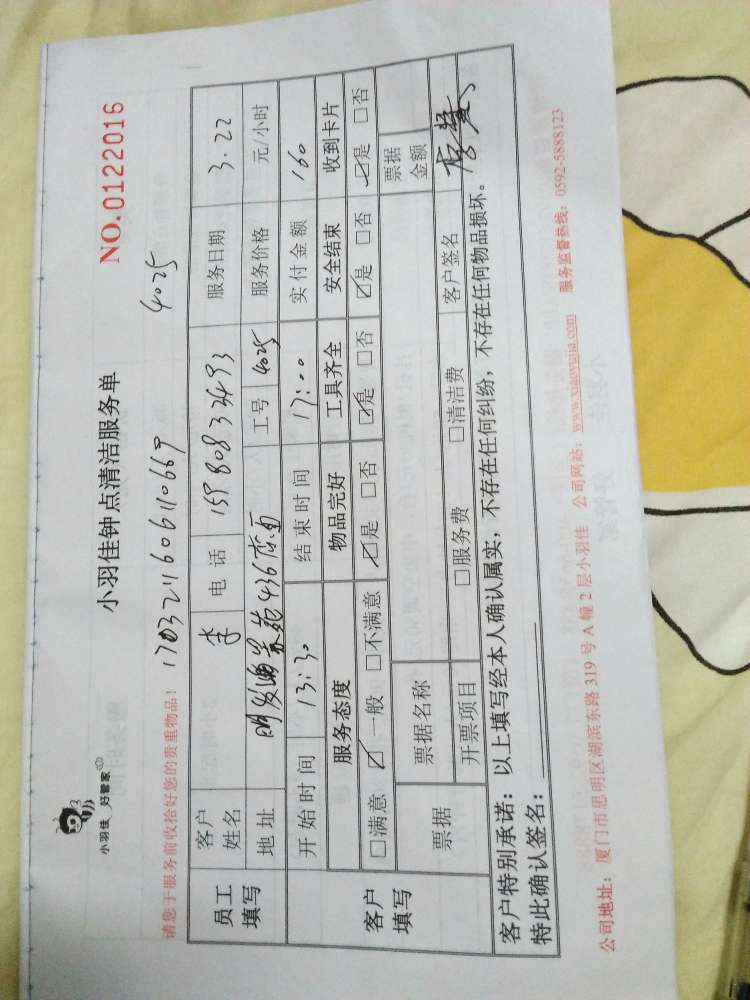 小羽佳 好管家
小羽佳钟点清洁服务单
NO.0122016
请您于服务前收拾好您的贵重物品！ 1703211606110669 4025
员工填写 客户姓名 李 电话 服务日期 3.22
地址 436 工号 4025 服务价格 元/小时
开始时间 13:30 结束时间 17:00 实付金额 160
客户填写 服务态度 物品完好 工具齐全 安全结束 收到卡片
□满意 ☑一般 □不满意 ☑是 □否 ☑是 □否 ☑是 □否 ☑是 □否
票据 票据名称 票据金额
开票项目 □服务费 □清洁费 客户签名
客户特别承诺：以上填写经本人确认属实，不存在任何纠纷，不存在任何物品损坏。
特此确认签名：
公司地址：厦门市思明区湖滨东路 319 号 A 幢 2 层小羽佳 公司网站：www.xiaoyujia.com 服务监督热线：0592-5888123